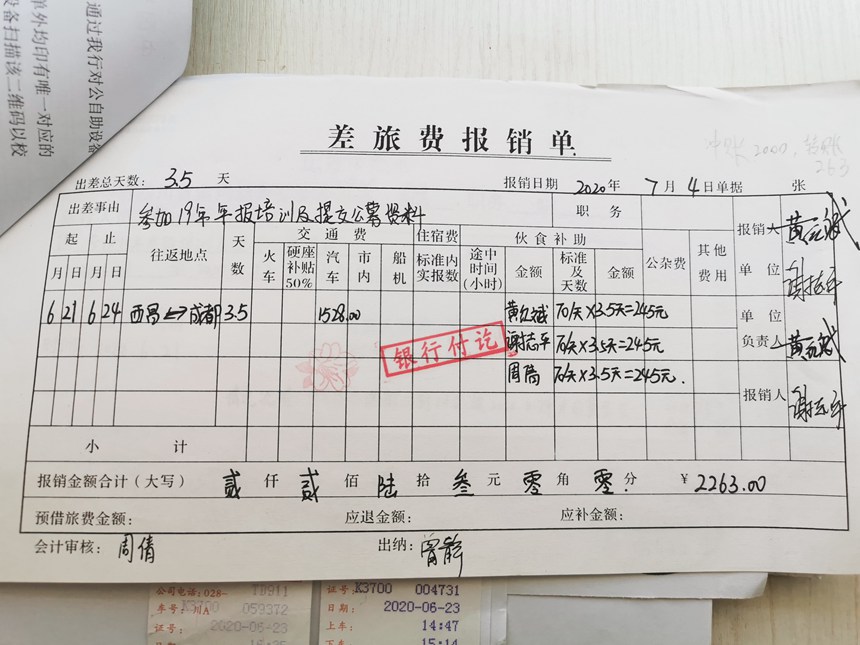 通过我行对公自助设备
单外均印有唯一对应的
设备扫描该二维码以校
差旅费报销单
冲账2000.
263
出差总天数: 3.5 天 报销日期 2020年 7月4日单据 张
出差事由 参加19年年报培训及提交公募资料 职务 报销人
起 止 往返地点 天数 交通费 住宿费 伙食补助 公杂费 其他费用 单位
月 日 月 日 火车 硬座补贴50% 汽车 市内 船机 标准内实报数 途中时间(小时) 金额 标准及天数 金额
6 21 6 24 西昌⟷成都 3.5 1528.00 70/天×3.5天=245元 单位负责人
银行付讫
谢志平 70/天×3.5天=245元
周 70/天×3.5天=245元. 报销人
小计
报销金额合计(大写) 贰仟贰佰陆拾叁元零角零分. ¥2263.00
预借旅费金额: 应退金额: 应补金额:
会计审核: 周倩 出纳: 曾
公司电话:028- TB911
车号: 川A 059372
证号: 2020-06-23
证号: K3700 004731
日期: 2020-06-23
上车: 14:47
下车 15:14